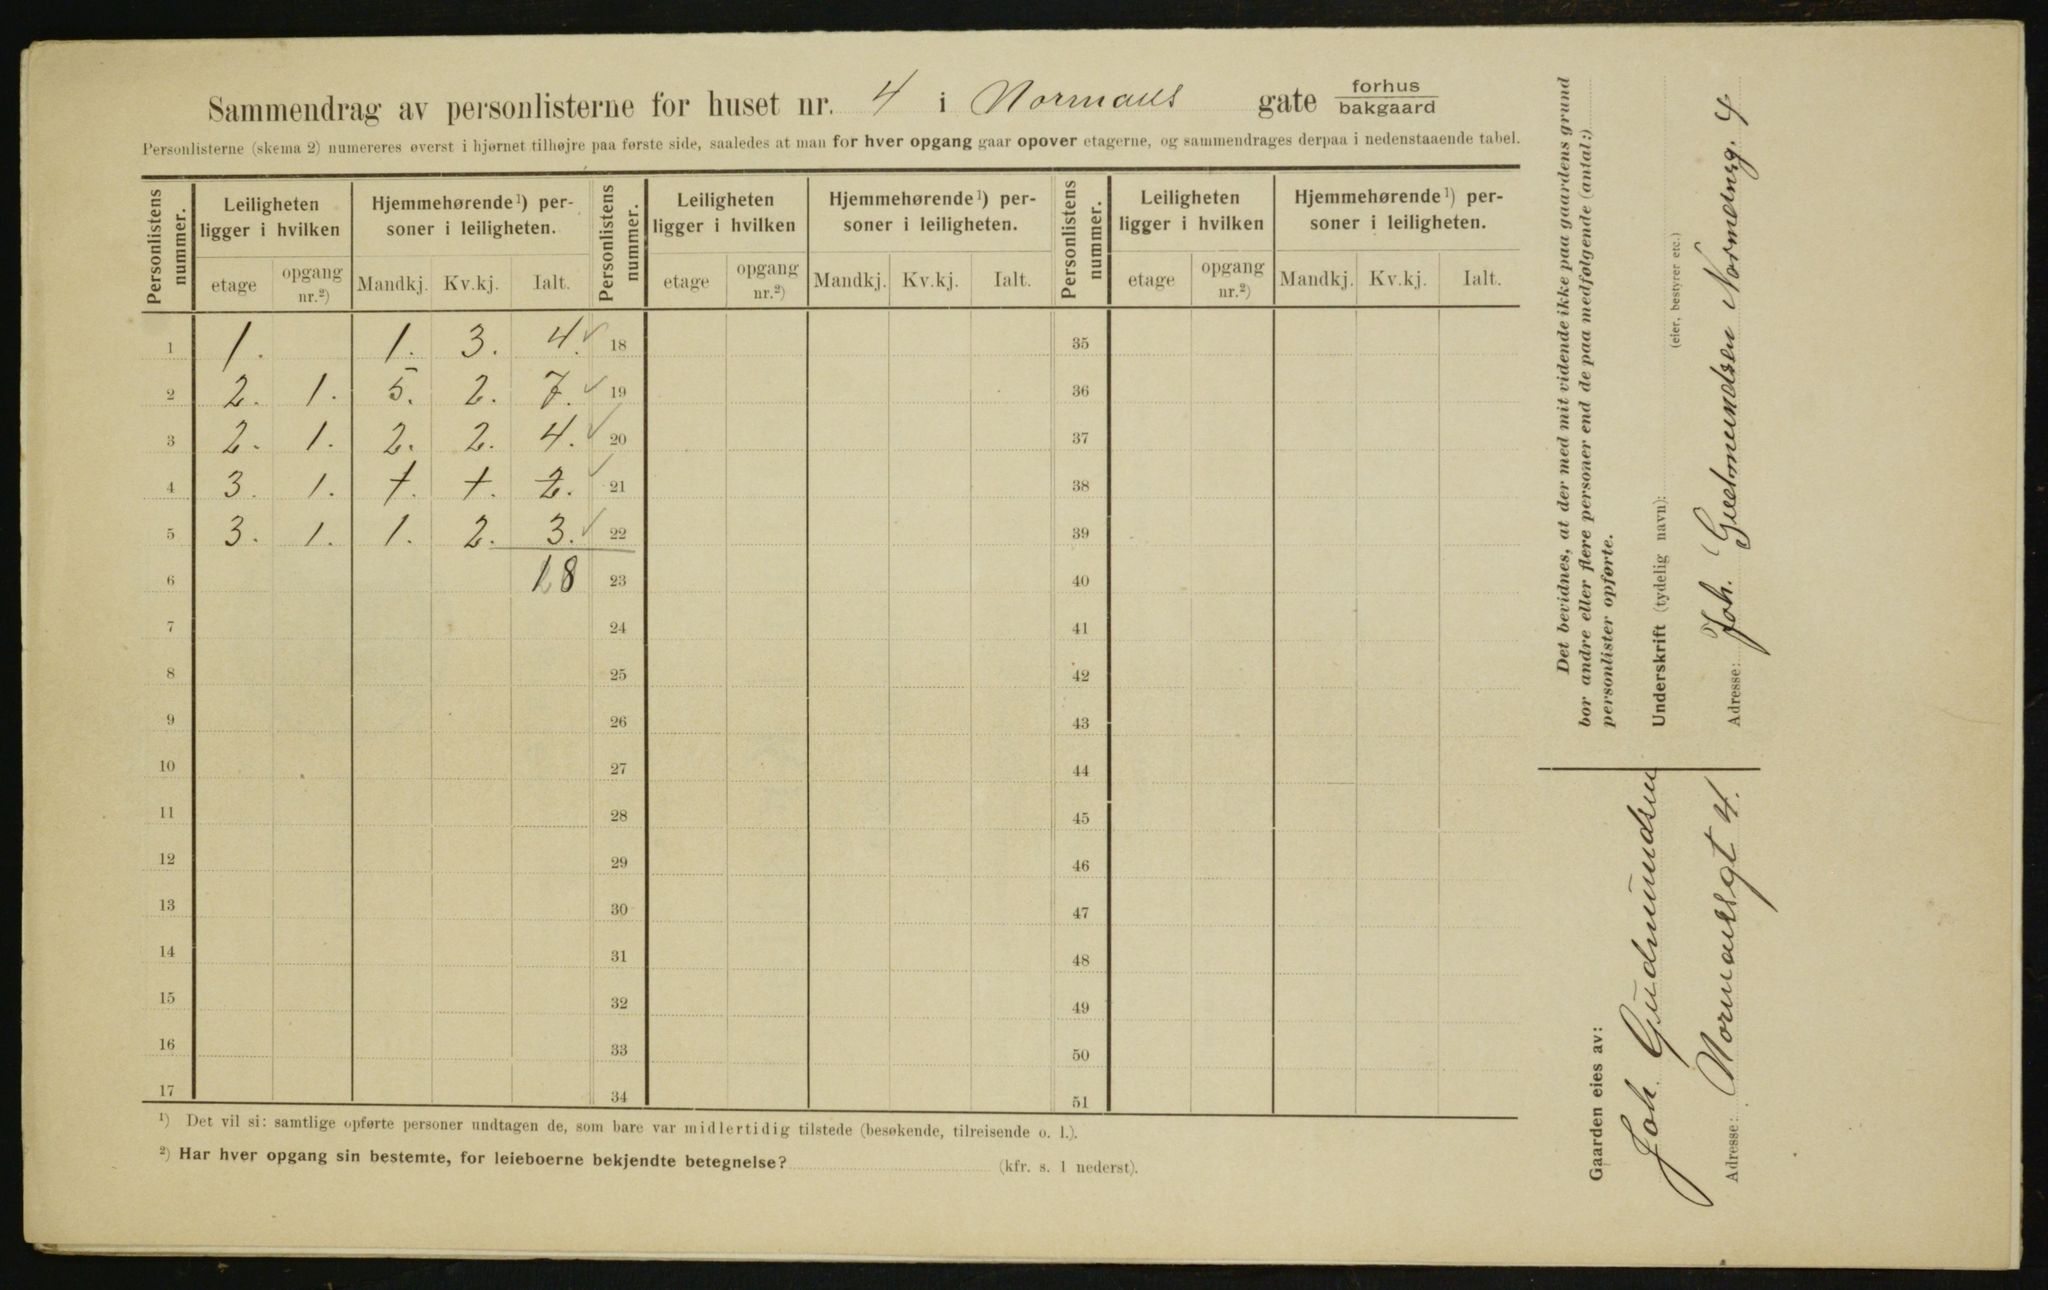 Sammendrag av personlisterne for huset nr. 4 i Normans gate forhus bakgaard
Personlisterne (skema 2) numereres øverst i hjørnet tilhøjre paa første side, saaledes at man for hver opgang gaar opover etagerne, og sammendrages derpaa i nedenstaaende tabel.
Personlistens nummer. Leiligheten ligger i hvilken Hjemmehørende¹) personer i leiligheten. Personlistens nummer. Leiligheten ligger i hvilken Hjemmehørende¹) personer i leiligheten. Personlistens nummer. Leiligheten ligger i hvilken Hjemmehørende¹) personer i leiligheten.
etage opgang nr.²) Mandkj. Kv.kj. Ialt. etage opgang nr.²) Mandkj. Kv.kj. Ialt. etage opgang nr.²) Mandkj. Kv.kj. Ialt.
1 1. 1. 3. 4. ✓ 18 35
2 2. 1. 5. 2. 7. ✓ 19 36
3 2. 1. 2. 2. 4. ✓ 20 37
4 3. 1. 1. 1. 2. ✓ 21 38
5 3. 1. 1. 2. 3. ✓ 22 39
6 18 23 40
7 24 41
8 25 42
9 26 43
10 27 44
11 28 45
12 29 46
13 30 47
14 31 48
15 32 49
16 33 50
17 34 51
¹) Det vil si: samtlige opførte personer undtagen de, som bare var midlertidig tilstede (besøkende, tilreisende o. l.).
²) Har hver opgang sin bestemte, for leieboerne bekjendte betegnelse? (kfr. s. 1 nederst).
Det bevidnes, at der med mit vidende ikke paa gaardens grund
bor andre eller flere personer end de paa medfølgende (antal:)
personlister opførte.
Underskrift (tydelig navn):
(eier, bestyrer etc.)
Joh. Gudmundsen Normansg. 4
Adresse:
Gaarden eies av:
Joh. Gudmundsen
Adresse: Normansgt 4.